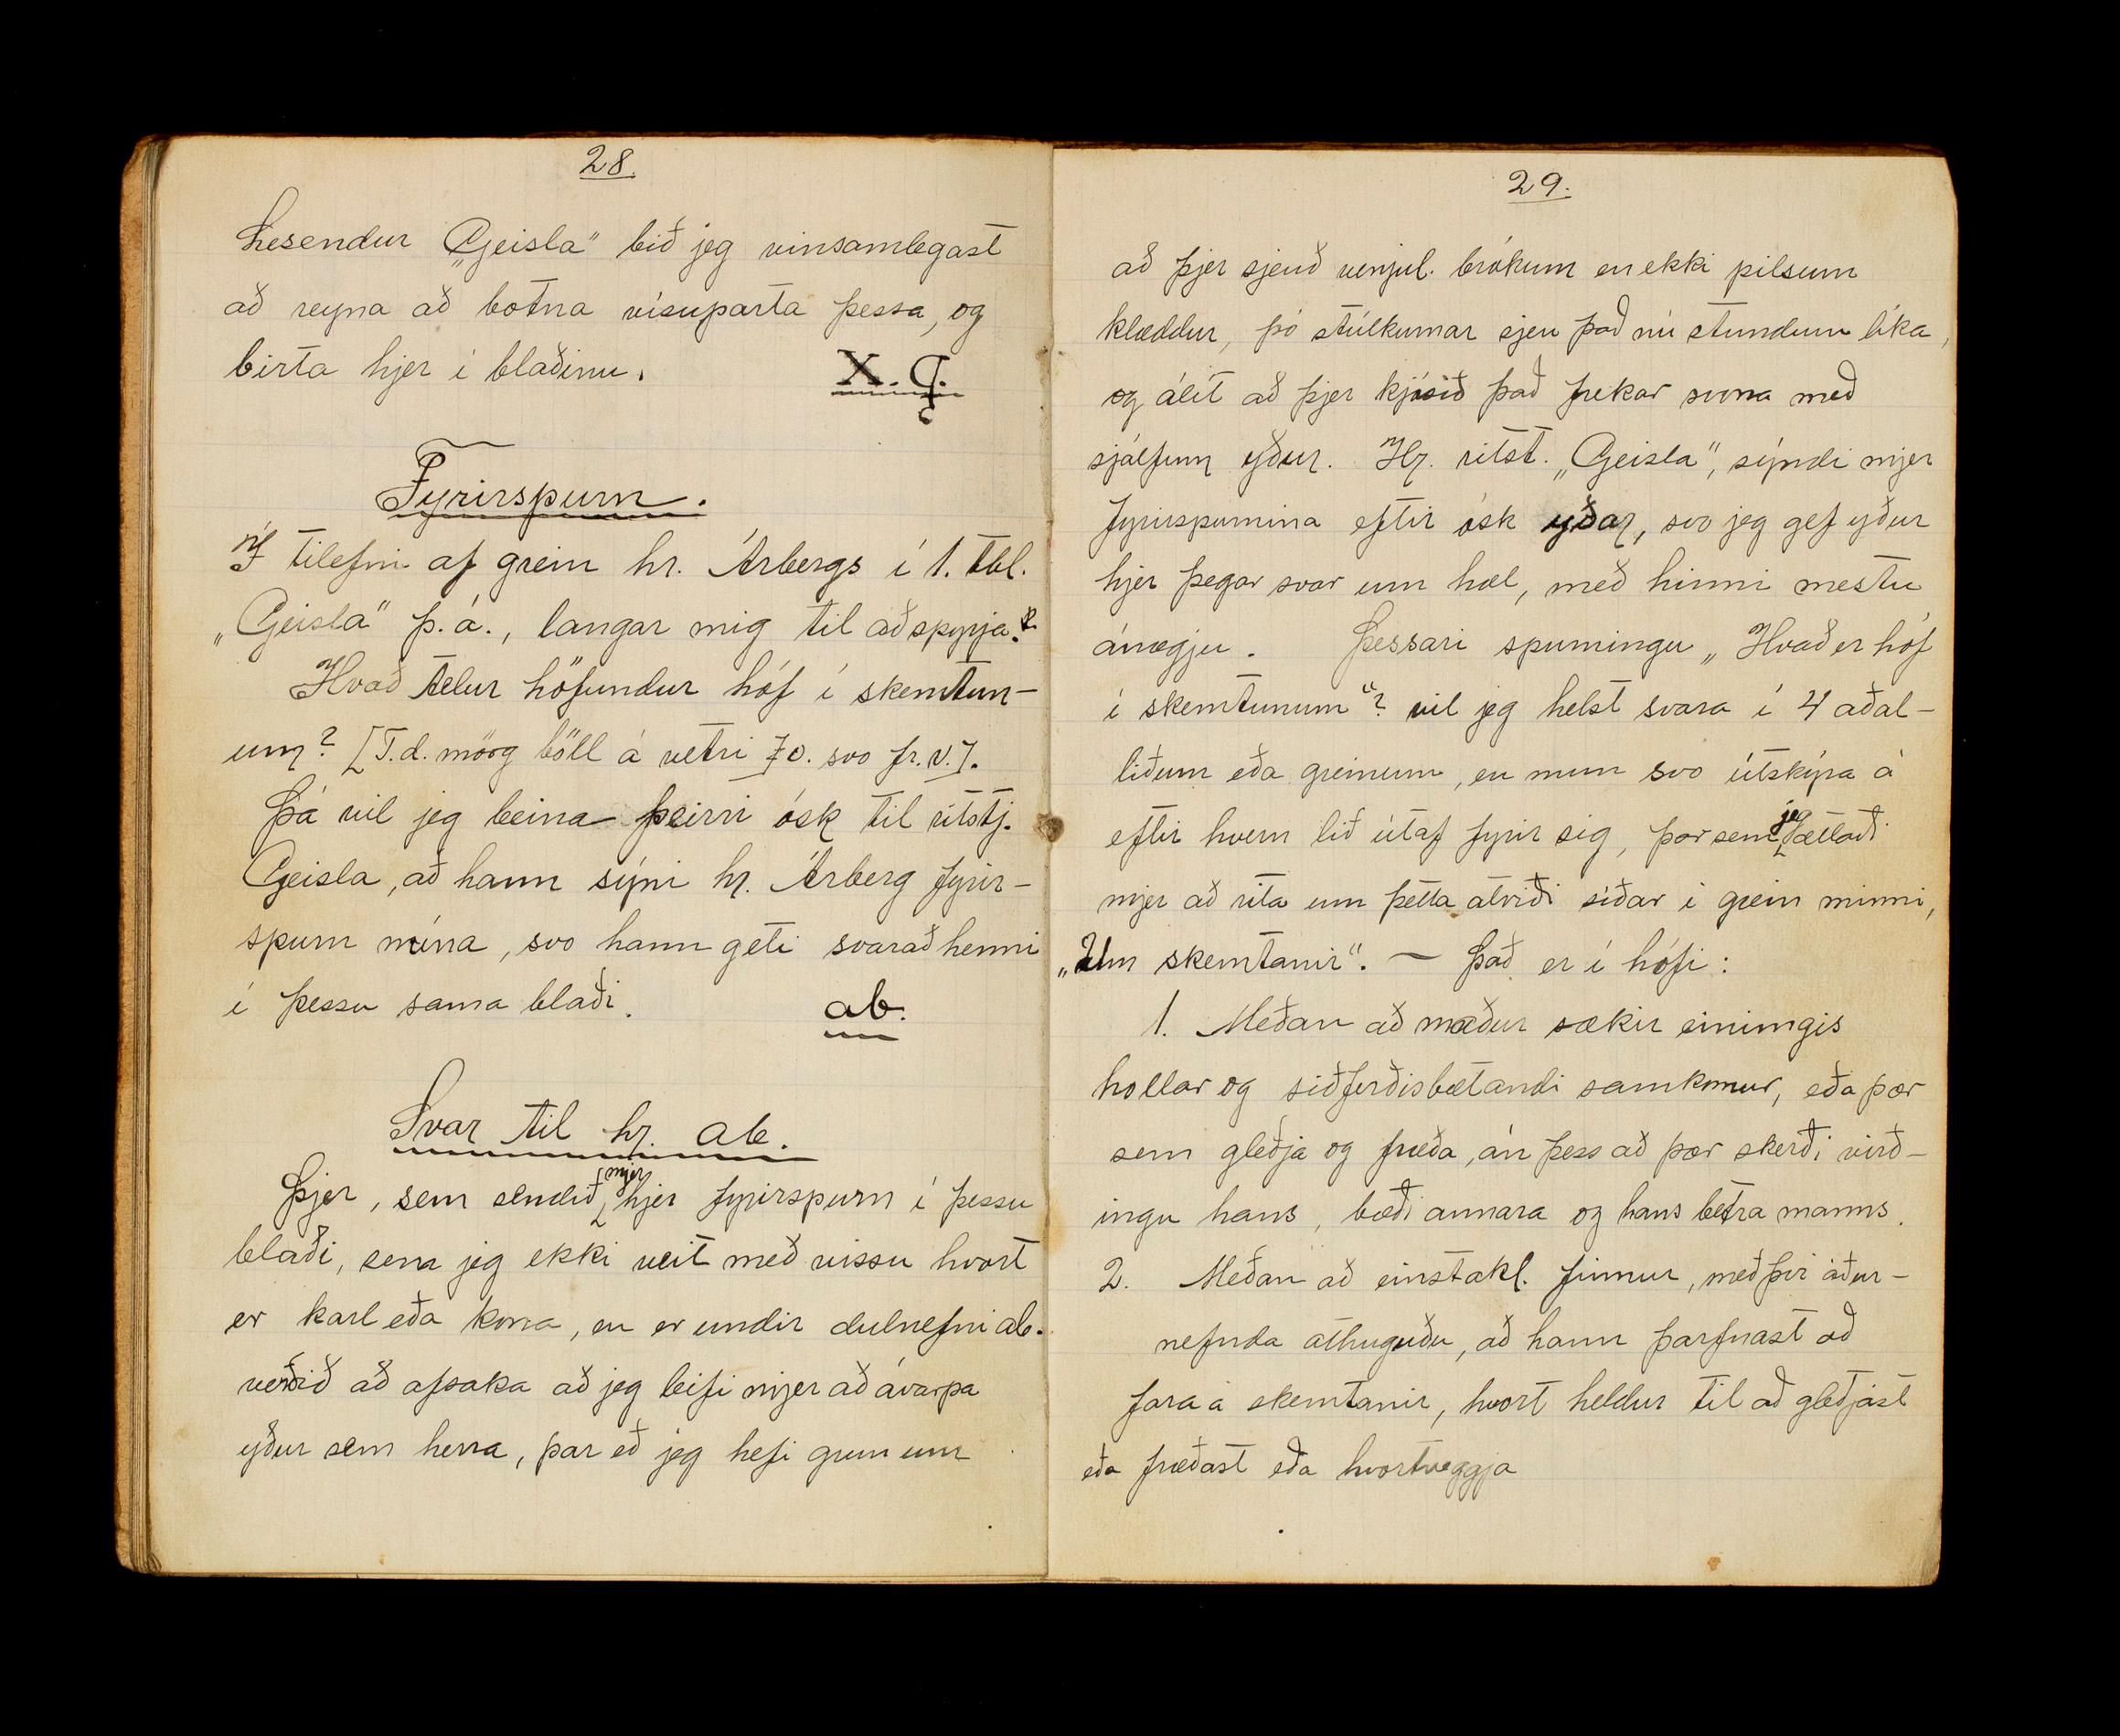 28.
Lesendur „Geisla" bið jeg vinsamlegast
að reyna að botna vísuparta þessa, og
birta hjer í blaðinu.
X.Ç.
Fyrirspurn.
Í tilefni af grein hr. Árbergs í 1. tbl.
„Geisla" þ.á., langar mig til að spyrja:
Hvað telur höfundur hóf í skemtun-
um? [T.d. mörg böll á vetri o. svo fr. v.].
Þá vil jeg beina þeirri ósk til ritstj.
Geisla, að hann sýni hr. Árberg fyrir-
spurn mína, svo hann geti svarað henni
í þessu sama blaði.
ab.
Svar til hr. ab.
Þjer, sem sendið mjer hjer fyrirspurn í þessu
blaði, sem jeg ekki veit með vissu hvort
er karl eða kona, en er undir dulnefni ab.
verðið að afsaka að jeg leifi mjer að ávarpa
yður sem herra, þar eð jeg hefi grun um
29.
að þjer sjeuð venjul. brókum en ekki pilsum
klæddur, þó stúlkurnar sjeu það nú stundum líka,
og álít að þjer kjósið það frekar svona með
sjálfum yður. Hr. ritst. „Geisla", sýndi mjer
fyrirspurnina eftir ósk yðar, svo jeg gef yður
hjer þegar svar um hæl, með hinni mestu
ánægju. Þessari spurningu „Hvað er hóf
í skemtunum"? vil jeg helst svara í 4 aðal-
liðum eða greinum, en mun svo útskýra á
eftir hvern lið útaf fyrir sig, þar sem jeg ætlaði
mjer að rita um þetta atriði síðar í grein minni,
„Um skemtanir". – Það er í hófi:
1. Meðan að maður sækir einungis
hollar og siðferðisbætandi samkomur, eða þær
sem gleðja og fræða, án þess að þær skerði virð-
ingu hans, bæði annara og hans betra manns.
2. Meðan að einstakl. finnur, með þir áður-
nefnda athuguðu, að hann þarfnast að
fara á skemtanir, hvort heldur til að gleðjast
eða fræðast eða hvortveggja